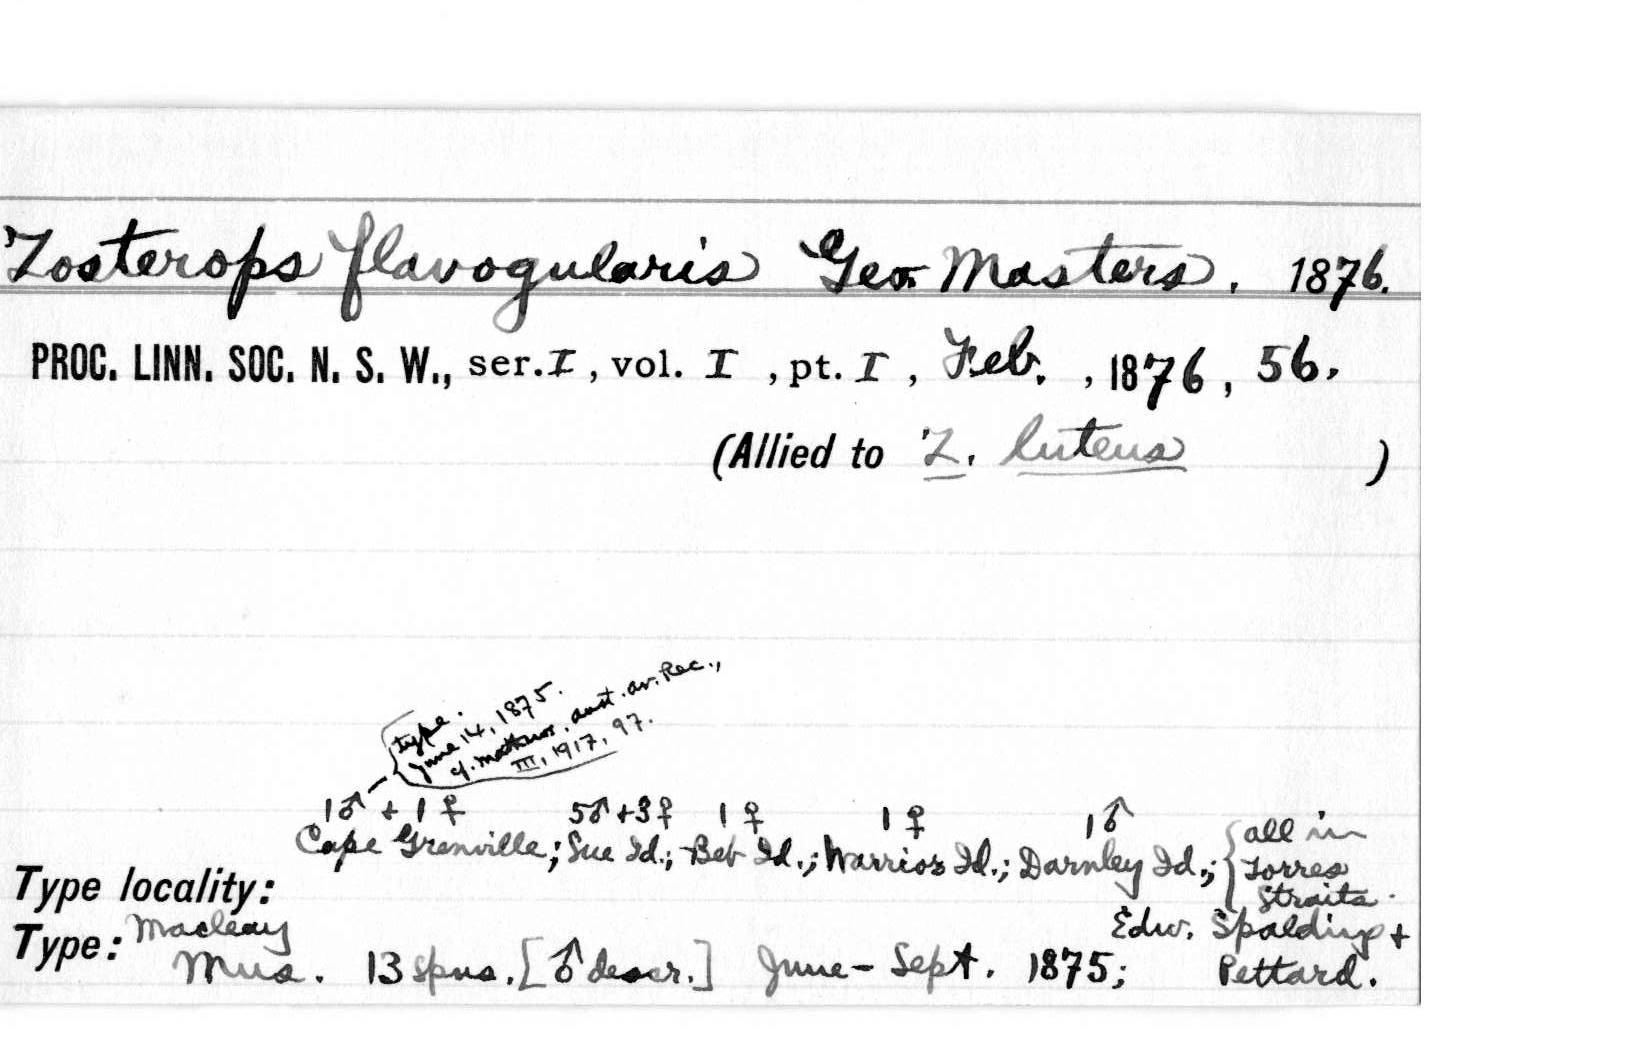 Zosterops flavogularis Geo. Masters. 1876.
PROC. LINN. SOC. N. S. W., ser. I, vol. I, pt. I, Feb., 1876, 56.
(Allied to Z. luteus)
type.
June 14, 1875.
cf. Mathews, Aust. av. Rec.,
III, 1917, 97.
1♂ + 1♀ 5♂+3♀ 1♀ 1♀ 1♂
Cape Grenville; Sue Id.; Bet Id.; Warrior Id.; Darnley Id.; all in
Torres
Straits.
Type locality:
Type: Macleay Edw. Spalding +
Mus. 13 spns. [♂ descr.] June - Sept. 1875; Pettard.